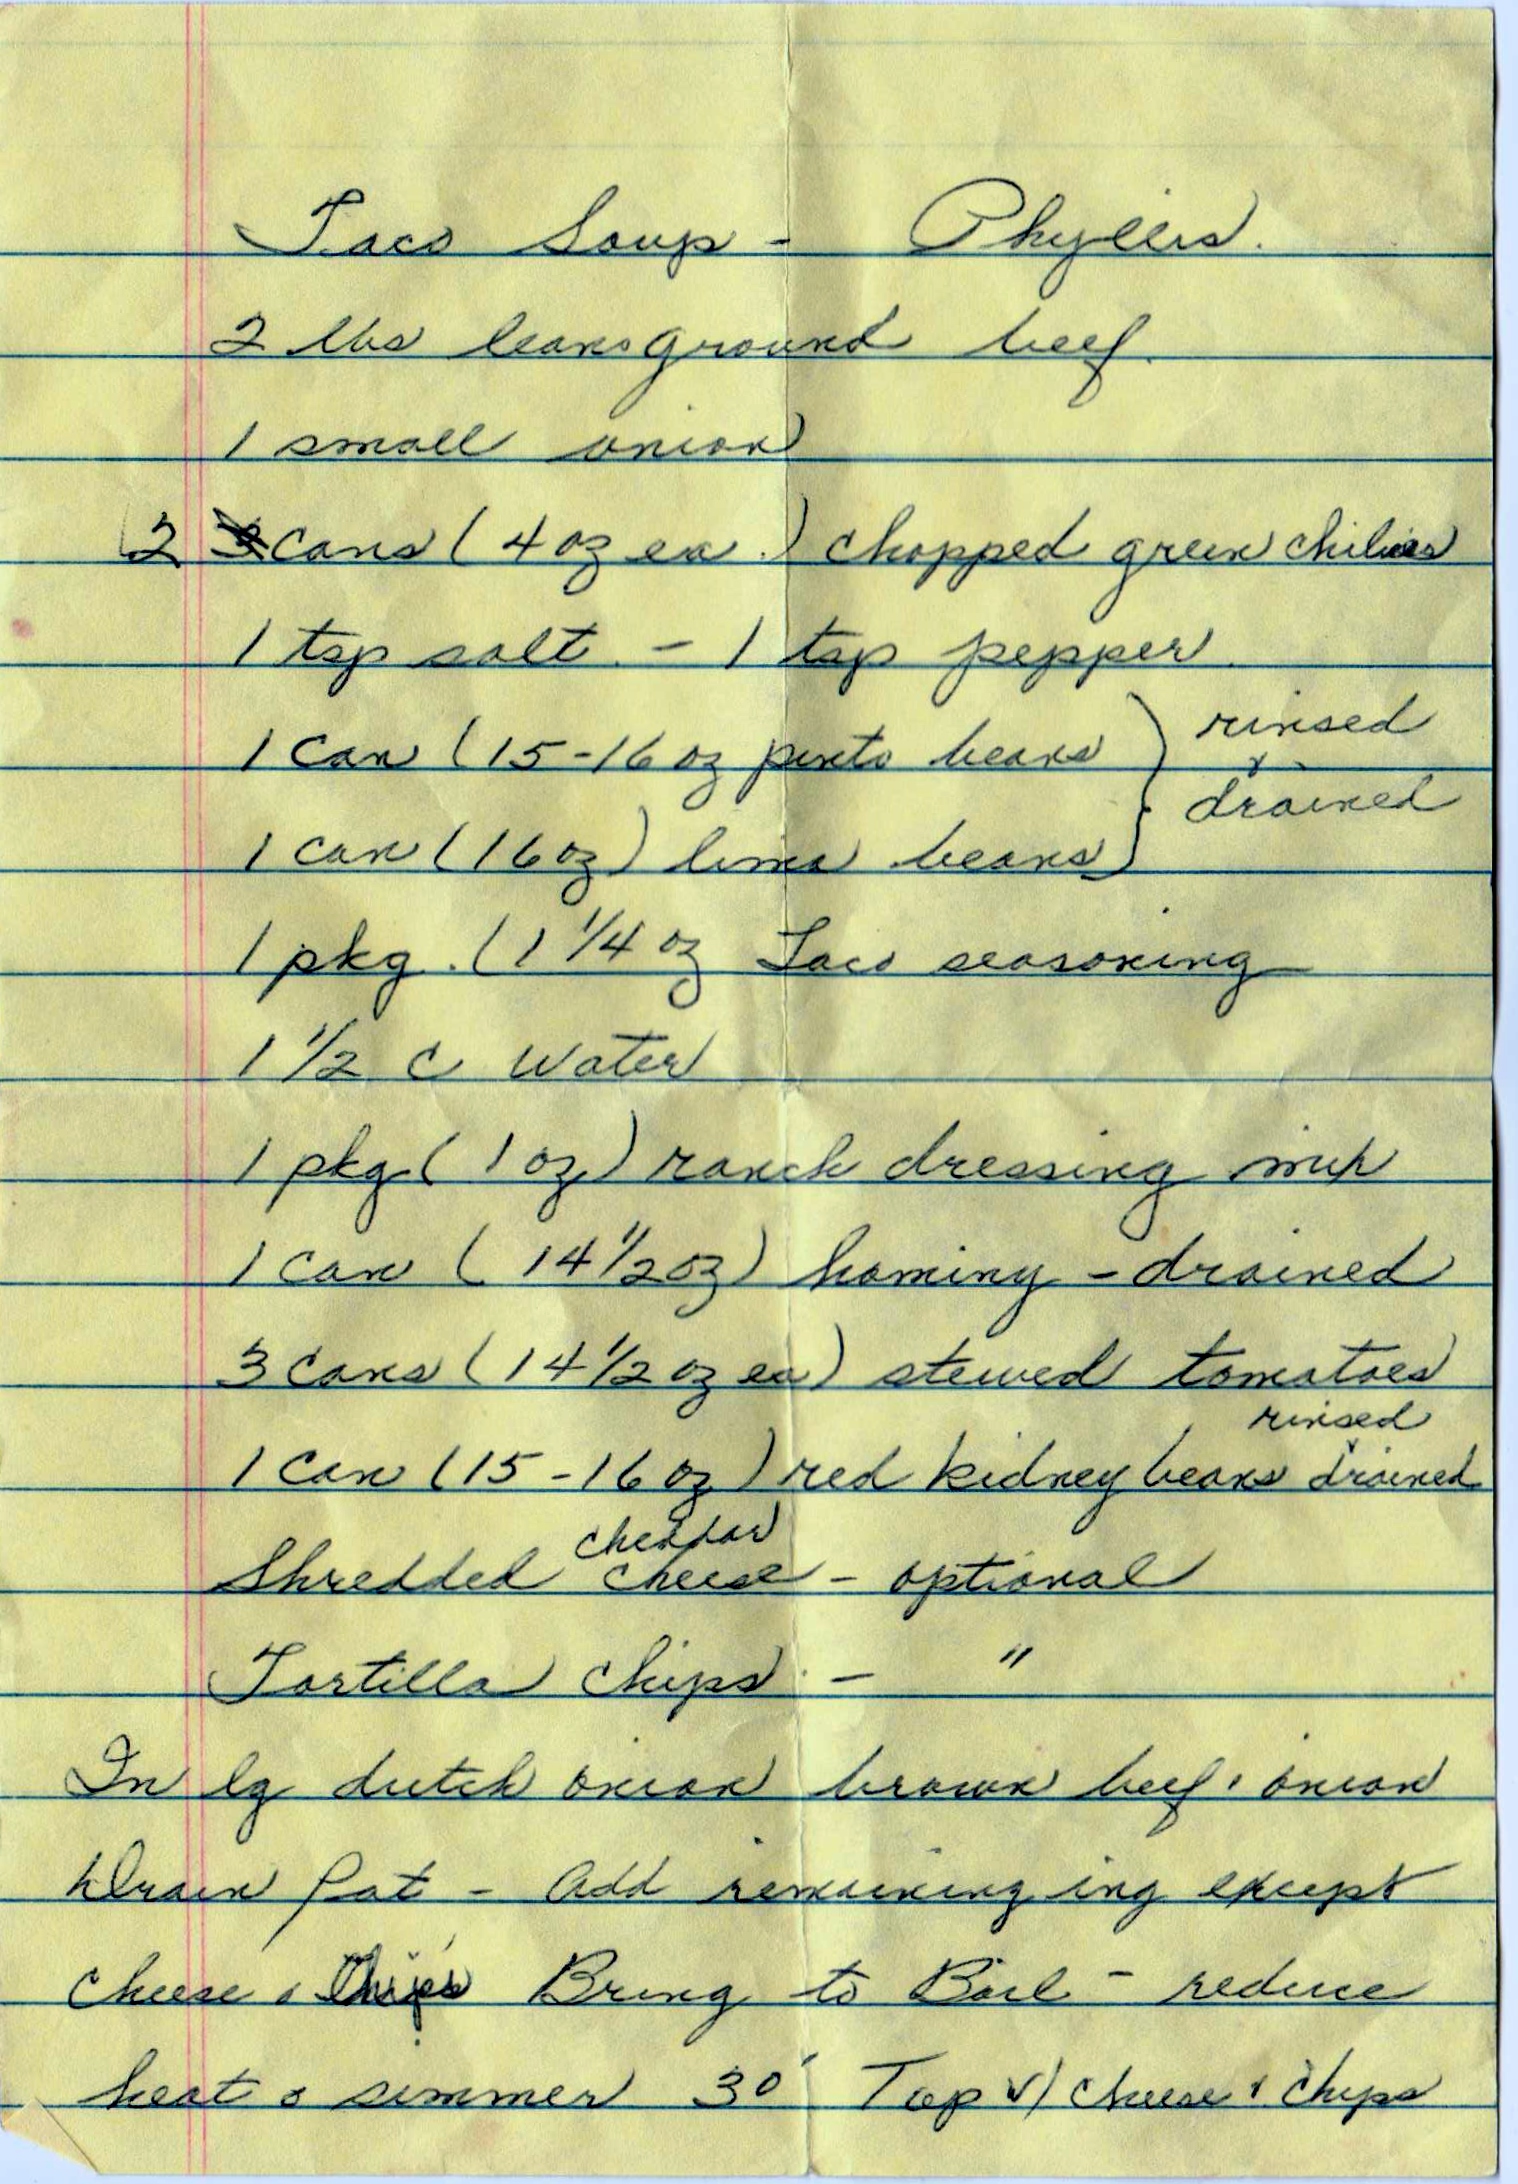 Taco Soup - Phyllis.
2 lbs lean ground beef.
1 small onion
2 cans (4 oz ea.) chopped green chilies
1 tsp salt. - 1 tsp pepper.
1 can (15-16 oz pinto beans } rinsed
& drained
1 can (16 oz) lima beans }
1 pkg. (1 1/4 oz Taco seasoning
1 1/2 c water
1 pkg (1 oz) ranch dressing mix
1 can (14 1/2 oz) hominy - drained
3 cans (14 1/2 oz ea) stewed tomatoes
rinsed
1 can (15-16 oz) red kidney beans drained
cheddar
Shredded cheese - optional
Tortilla chips - "
In lg dutch onion brown beef & onion
Drain fat - Add remaining ing except
cheese & Chips Bring to Boil - reduce
heat & simmer 30' Top w/ cheese & chips